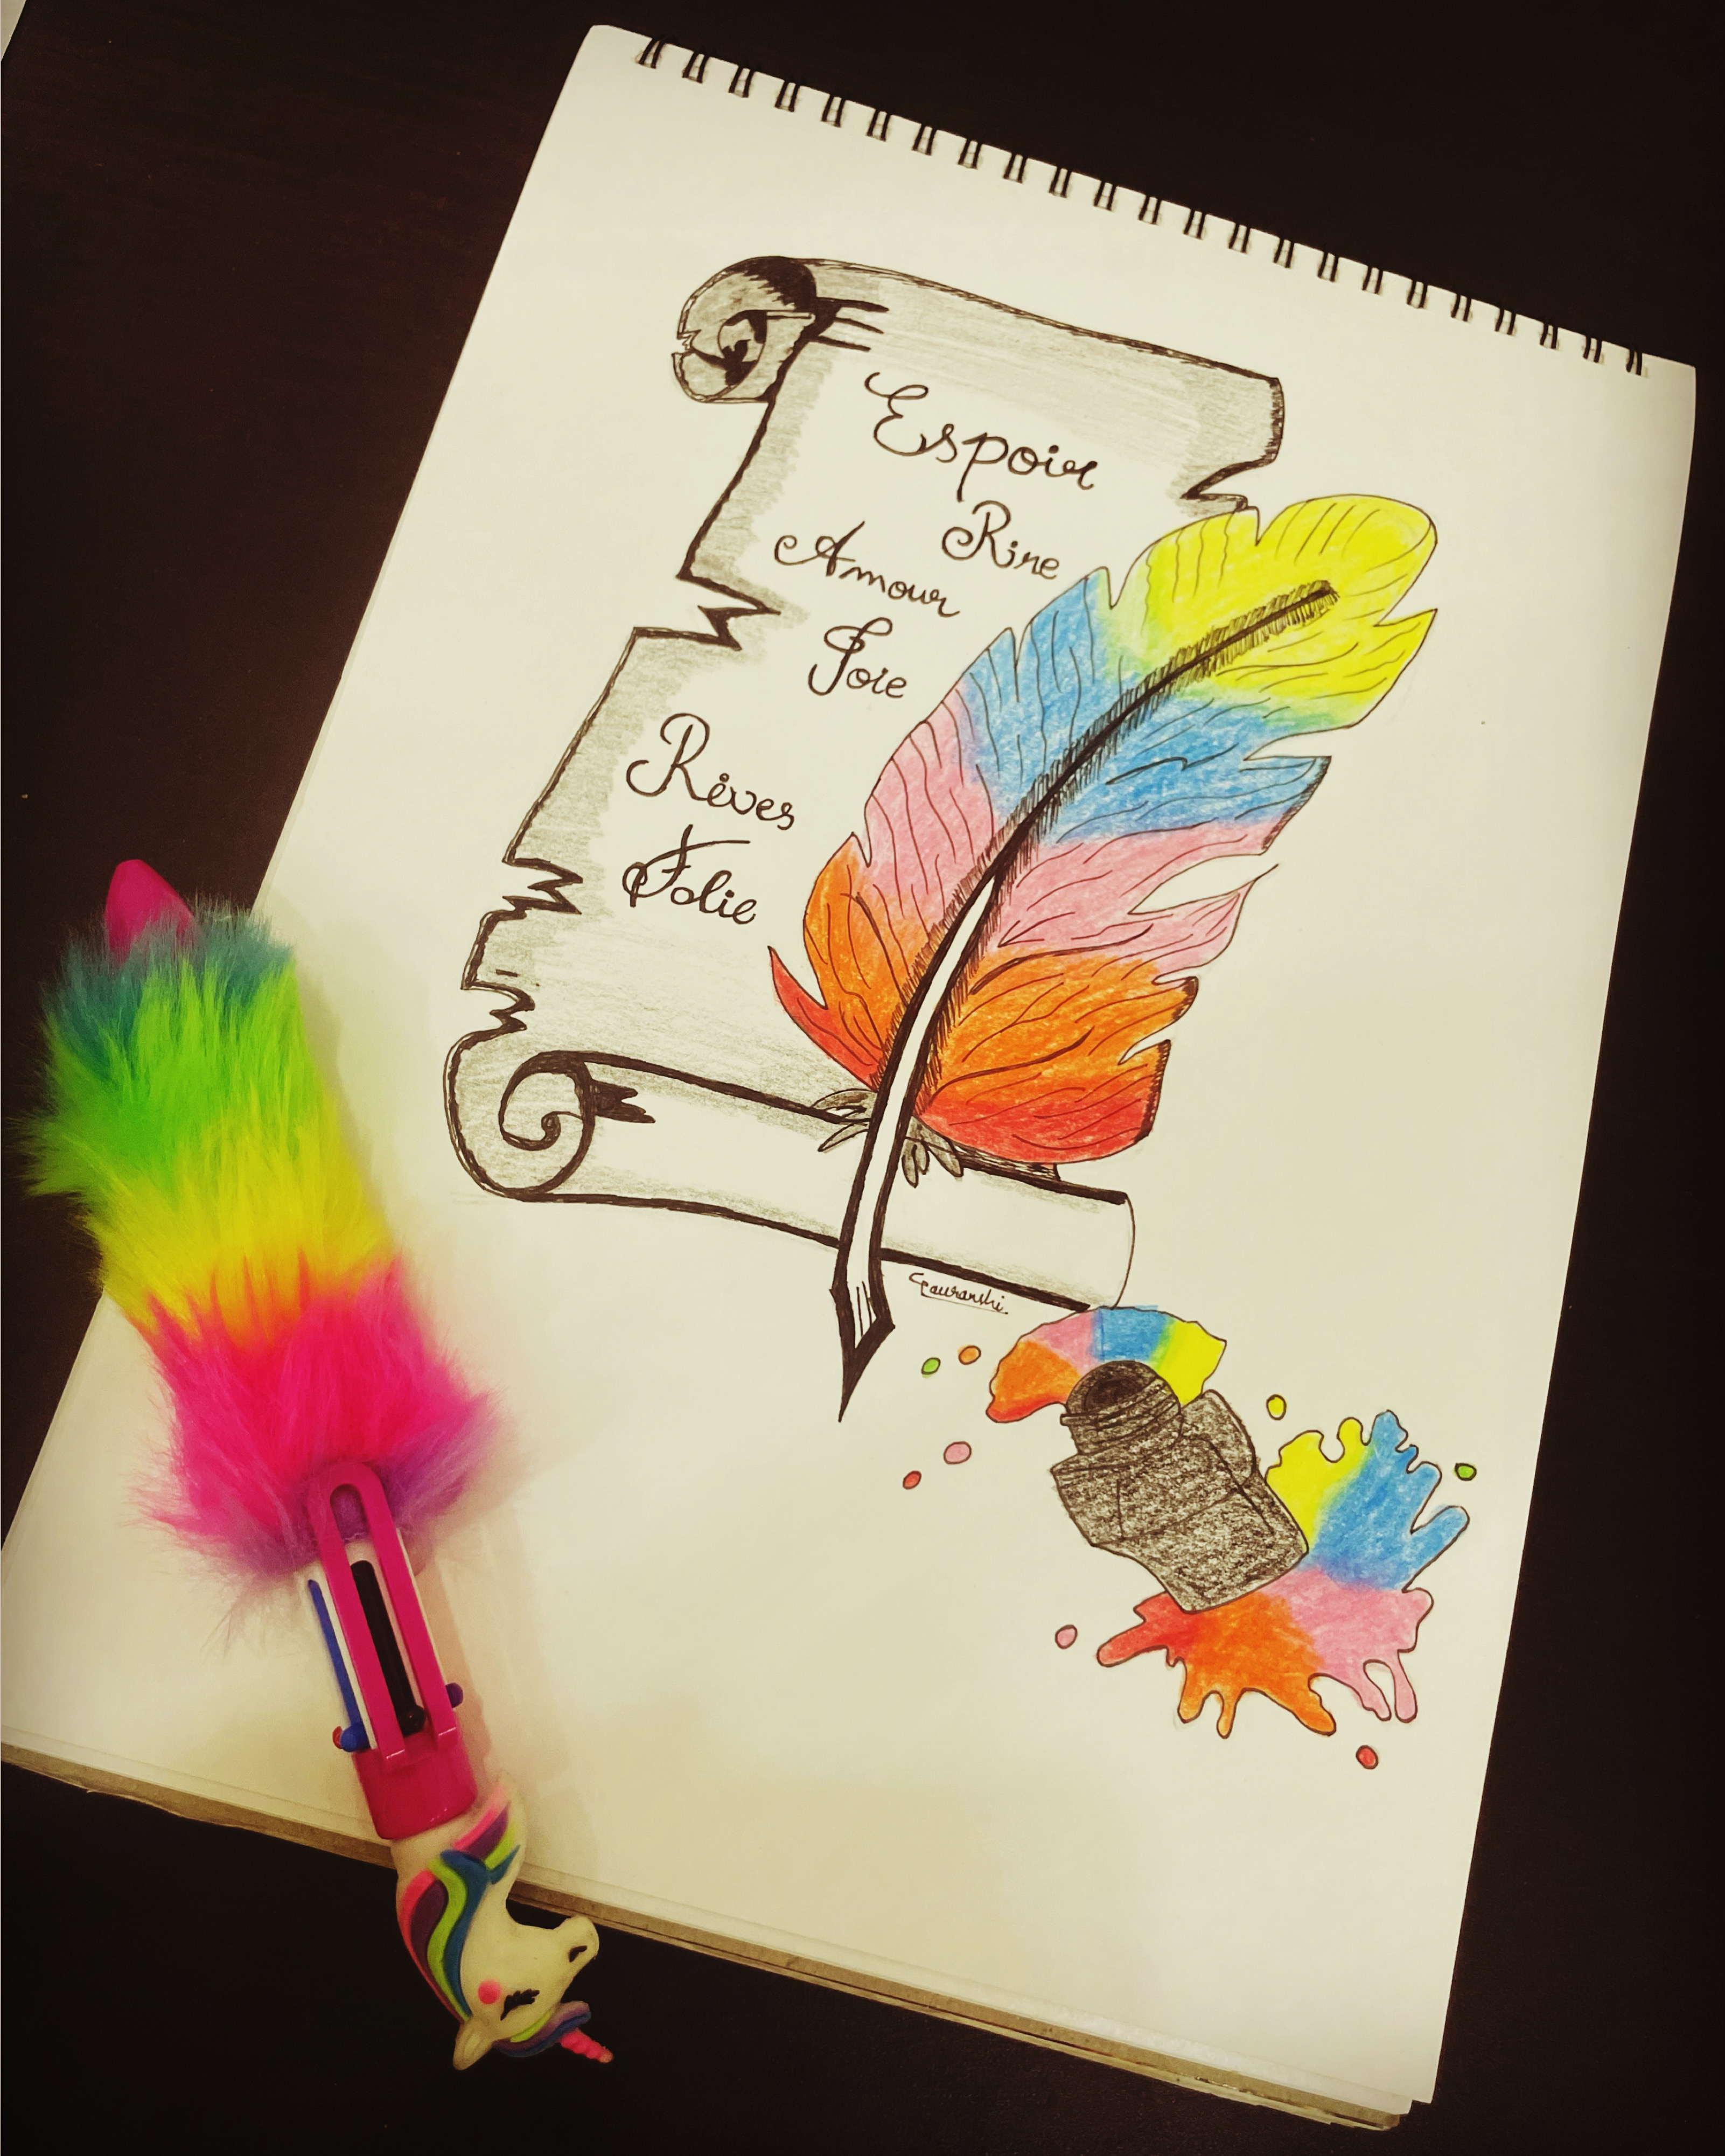 Espoir
Rire
Amour
Joie
Rêves
Folie
Gauranshi